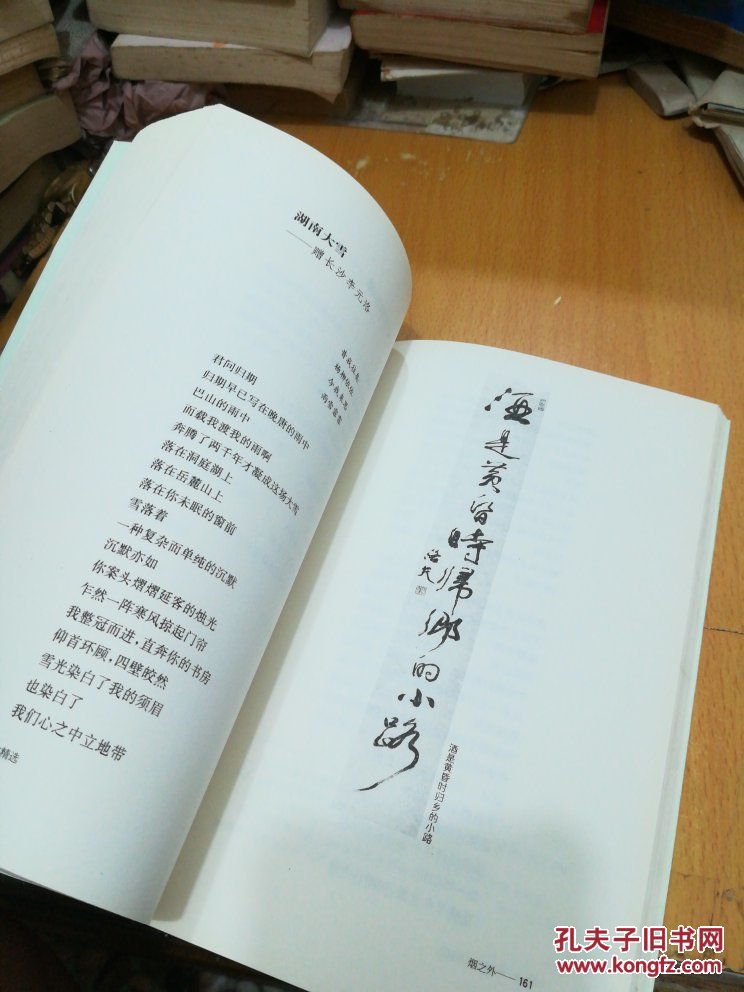 湖南大雪
——赠长沙李元洛
昔我往矣
杨柳依依
今我来思
雨雪霏霏
君问归期
归期早已写在晚唐的雨中
巴山的雨中
而载我渡我的雨啊
奔腾了两千年才凝成这场大雪
落在洞庭湖上
落在岳麓山上
落在你未眠的窗前
雪落着
一种复杂而单纯的沉默
沉默亦如
你案头熠熠延客的烛光
乍然一阵寒风掠起门帘
我整冠而进，直奔你的书房
仰首环顾，四壁皎然
雪光染白了我的须眉
也染白了
我们心之中立地带
精选
酒是黄昏時歸鄉的小路
洛夫
酒是黄昏时归乡的小路
烟之外——161
孔夫子旧书网
www.kongfz.com